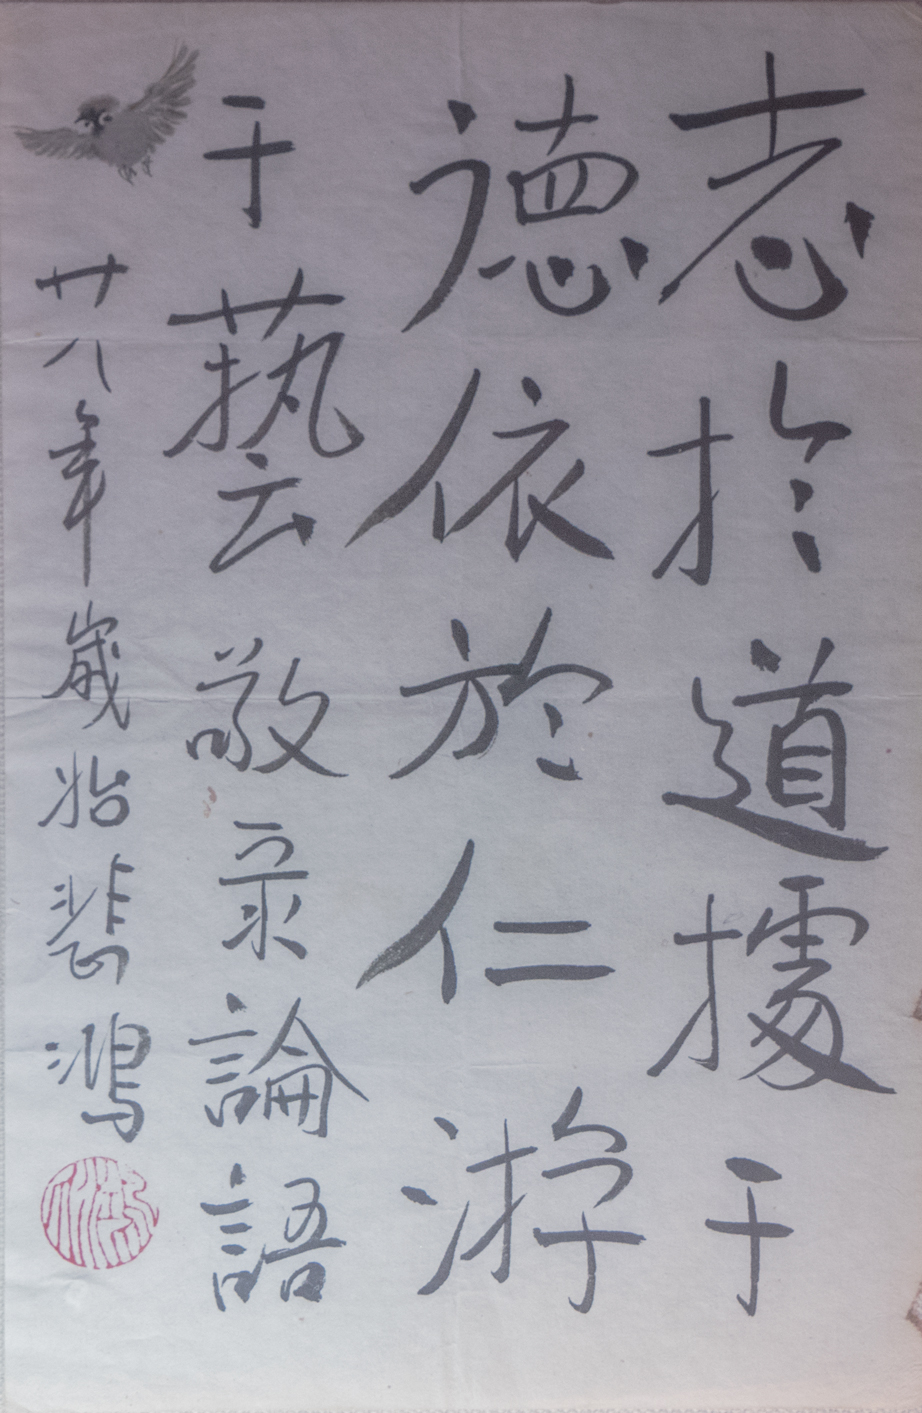 志於道據于
德依於仁游
于藝 敬录論語
廿八年歲始悲鴻